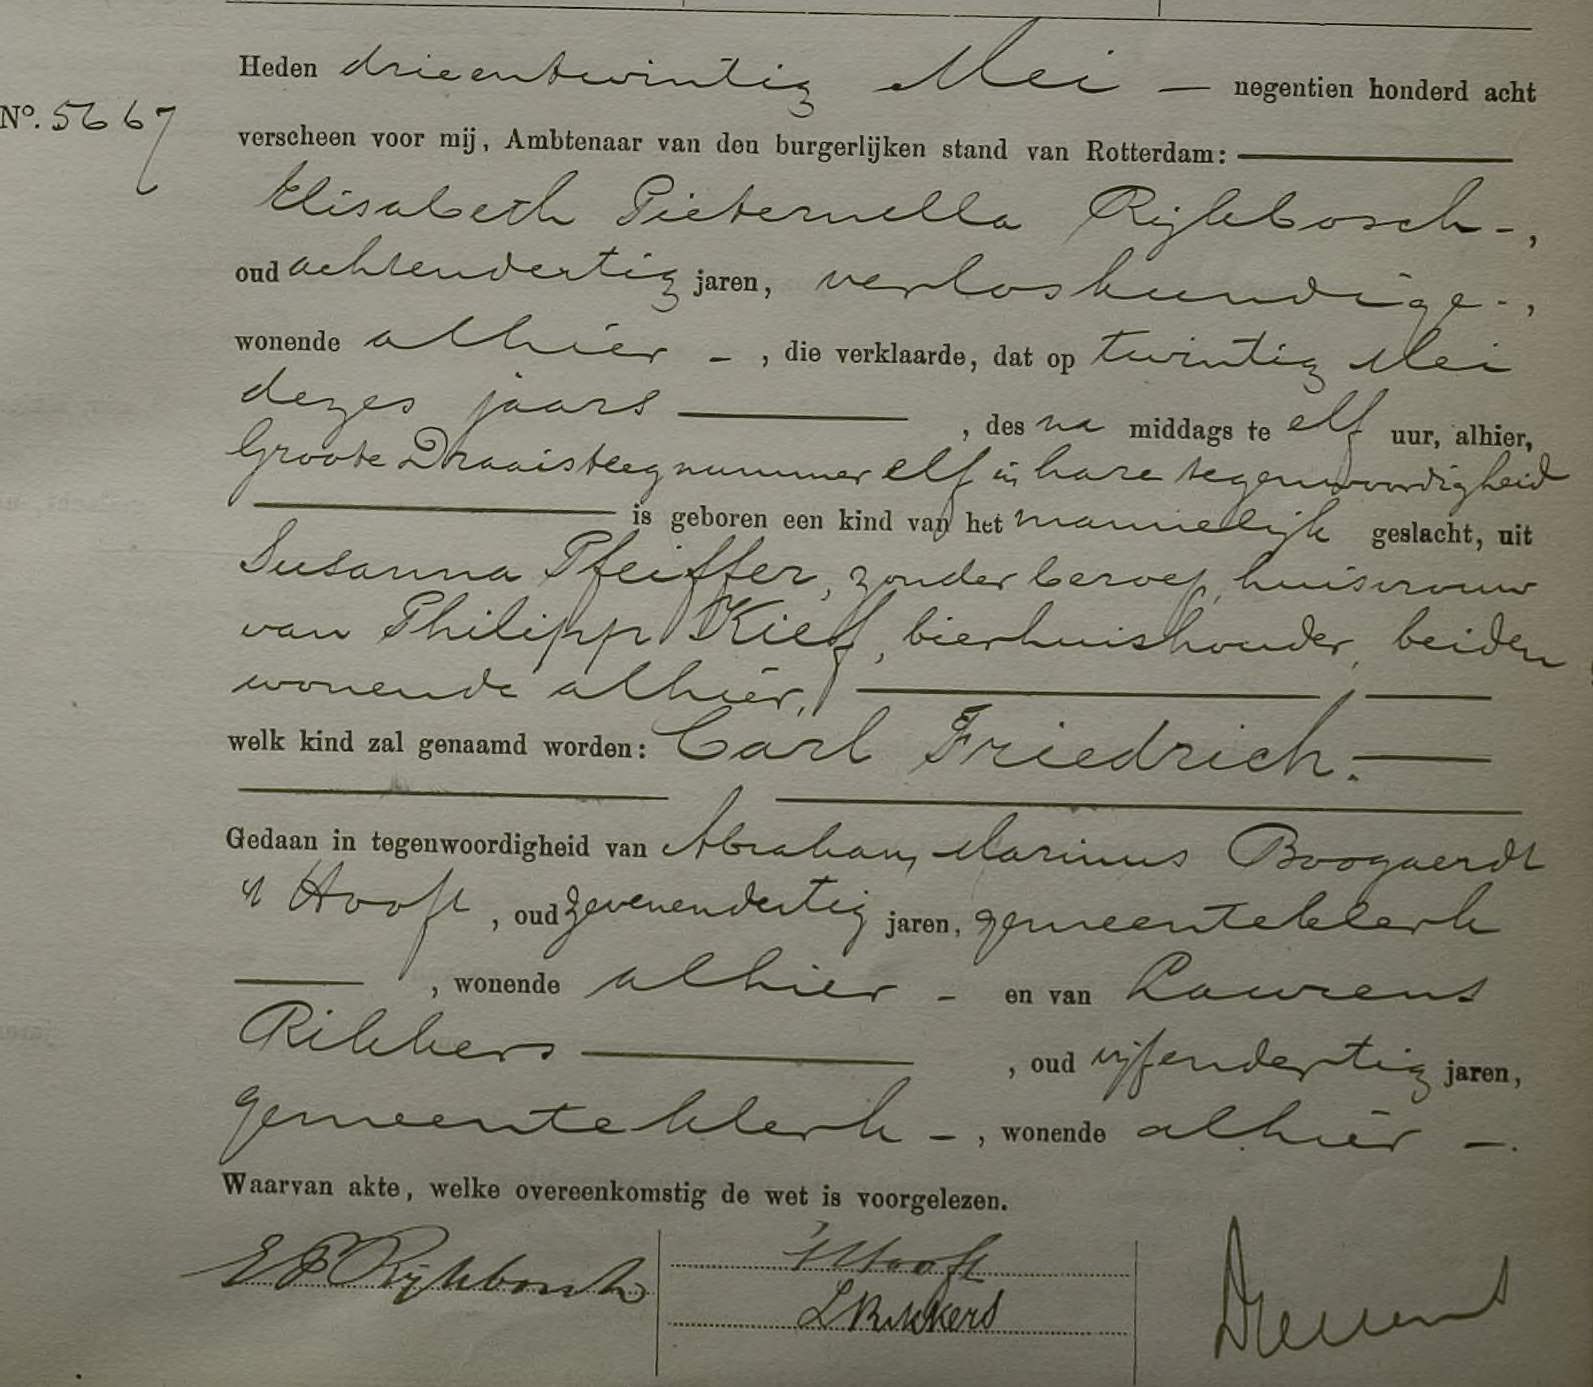 Heden drieentwintig Mei — negentien honderd acht
No. 5667
verscheen voor mij, Ambtenaar van den burgerlijken stand van Rotterdam:
Elisabeth Pieternella Rijkbosch -,
oud achtendertig jaren, verloskundige -,
wonende alhier - , die verklaarde, dat op twintig Mei
dezes jaars , des na middags te elf uur, alhier,
Groote Draaisteeg nummer elf in hare tegenwoordigheid
is geboren een kind van het mannelijk geslacht, uit
Susanna Pfeiffer, zonder beroep, huisvrouw
van Philipp Kief, bierhuishouder, beiden
wonende alhier,
welk kind zal genaamd worden: Carl Friedrich.
Gedaan in tegenwoordigheid van Abraham Marinus Boogaerdt
't Hooft , oud zevenendertig jaren, gemeenteklerk
, wonende alhier - en van Laurens
Rikkers , oud vijfendertig jaren,
gemeenteklerk - , wonende alhier -.
Waarvan akte, welke overeenkomstig de wet is voorgelezen.
E P Rijkbosch
't Hooft
L Rikkers